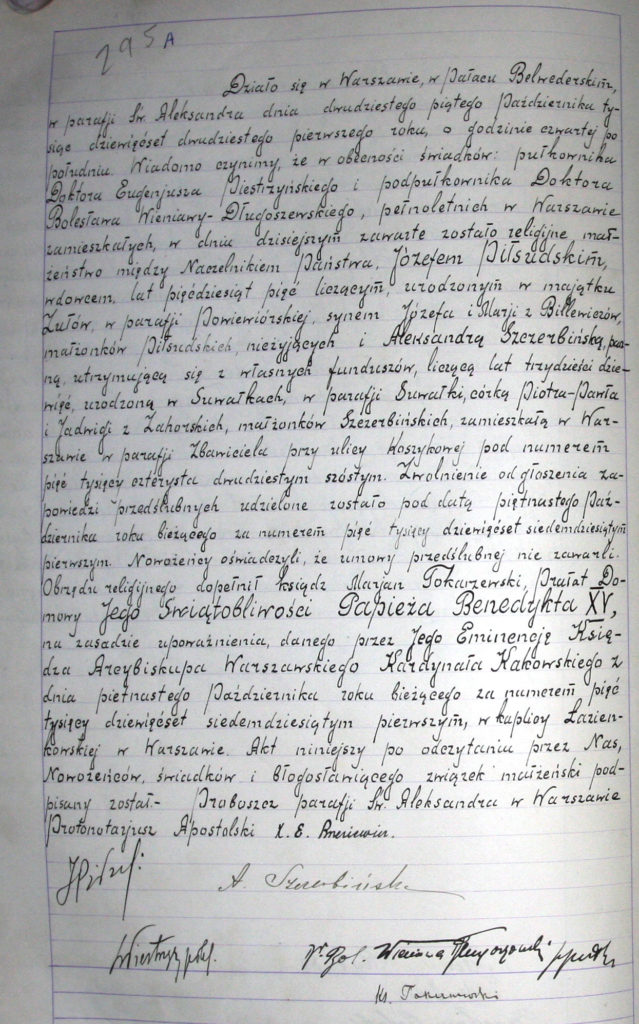 295 A
Działo się w Warszawie, w Pałacu Belwederskim,
w parafji Św. Aleksandra dnia dwudziestego piątego Października ty-
siąc dziewięćset dwudziestego pierwszego roku, o godzinie czwartej po
południu. Wiadomo czynimy, że w obecności świadków: pułkownika
Doktora Eugenjusza Piestrzyńskiego i podpułkownika Doktora
Bolesława Wieniawy-Długoszewskiego, pełnoletnich w Warszawie
zamieszkałych, w dniu dzisiejszym zawarte zostało religijne mał-
żeństwo między Naczelnikiem Państwa, Józefem Piłsudskim,
wdowcem, lat pięćdziesiąt pięć liczącym, urodzonym w majątku
Zułów, w parafji Powiewiórskiej, synem Józefa i Marji z Billewiczów,
małżonków Piłsudskich, nieżyjących i Aleksandrą Szczerbińską, pan-
ną, utrzymującą się z własnych funduszów, liczącą lat trzydzieści dzie-
więć, urodzoną w Suwałkach, w parafji Suwałki, córką Piotra-Pawła
i Jadwigi z Zahorskich, małżonków Szczerbińskich, zamieszkałą w War-
szawie w parafji Zbawiciela przy ulicy Koszykowej pod numerem
pięć tysięcy czterysta dwudziestym szóstym. Zwolnienie od głoszenia za-
powiedzi przedślubnych udzielone zostało pod datą piętnastego Paź-
dziernika roku bieżącego za numerem pięć tysięcy dziewięćset siedemdziesiątym
pierwszym. Nowożeńcy oświadczyli, że umowy przedślubnej nie zawarli.
Obrzędu religijnego dopełnił ksiądz Marjan Tokarzewski, Prałat Do-
mowy Jego Świątobliwości Papieża Benedykta XV,
na zasadzie upoważnienia, danego przez Jego Eminencję Księ-
dza Arcybiskupa Warszawskiego Kardynała Kakowskiego z
dnia piętnastego Października roku bieżącego za numerem pięć
tysięcy dziewięćset siedemdziesiątym pierwszym, w kaplicy Łazien-
kowskiej w Warszawie. Akt niniejszy po odczytaniu przez Nas,
Nowożeńców, świadków i błogosławiącego związek małżeński pod-
pisany został.- Proboszcz parafji Św. Aleksandra w Warszawie
Protonotarjusz Apostolski X. E.
A. Szczerbińska
Dr Bol. Wieniawa Długoszowski
Ks. Tokarzewski